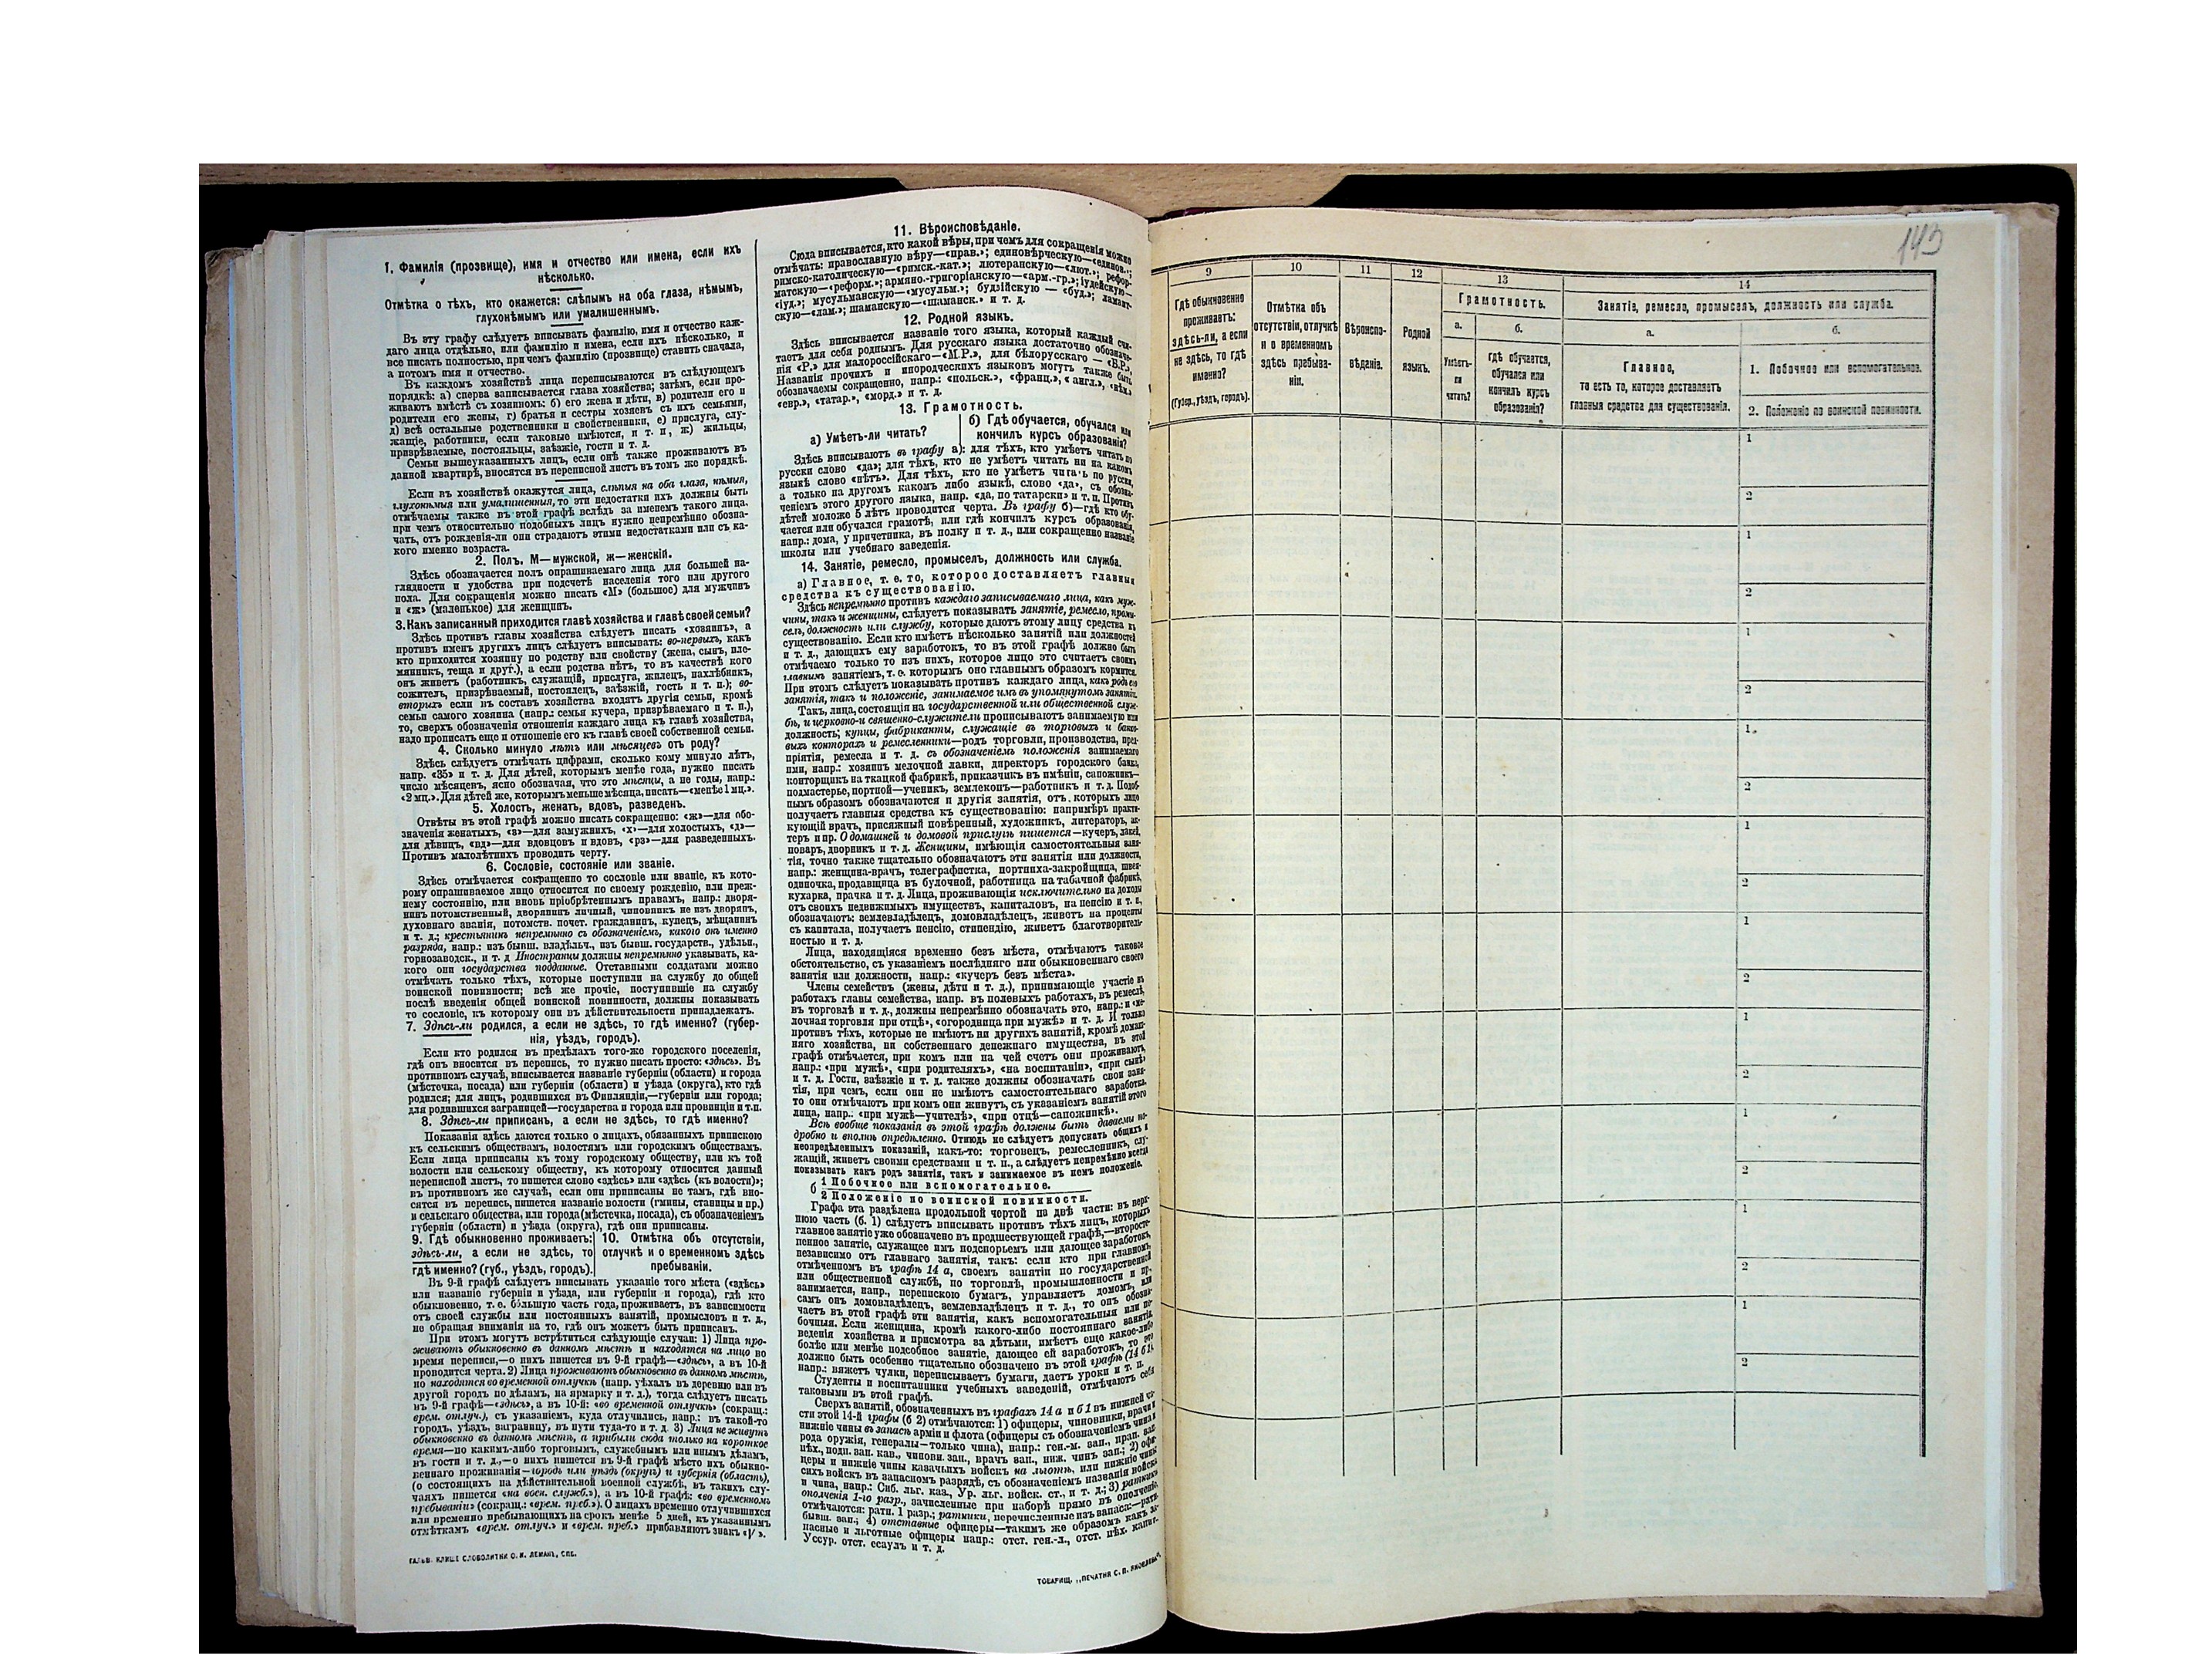 1. Фамилія (прозвище), имя и отчество или имена, если ихъ
нѣсколько.
Отмѣтка о тѣхъ, кто окажется: слѣпымъ на оба глаза, нѣмымъ,
глухонѣмымъ или умалишеннымъ.
Въ эту графу слѣдуетъ вписывать фамилію, имя и отчество каж-
даго лица отдѣльно, или фамилію и имена, если ихъ нѣсколько, и
все писать полностью, при чемъ фамилію (прозвище) ставить сначала,
а потомъ имя и отчество.
Въ каждомъ хозяйствѣ лица переписываются въ слѣдующемъ
порядкѣ: а) сперва записывается глава хозяйства; затѣмъ, если про-
живаютъ вмѣстѣ съ хозяиномъ: б) его жена и дѣти, в) родители его и
родители его жены, г) братья и сестры хозяевъ съ ихъ семьями,
д) всѣ остальные родственники и свойственники, е) прислуга, слу-
жащіе, работники, если таковые имѣются, и т. п., ж) жильцы,
призрѣваемые, постояльцы, заѣзжіе, гости и т. д.
Семьи вышеуказанныхъ лицъ, если онѣ также проживаютъ въ
данной квартирѣ, вносятся въ переписной листъ въ томъ же порядкѣ.
Если въ хозяйствѣ окажутся лица, слѣпыя на оба глаза, нѣмыя,
глухонѣмыя или умалишенныя, то эти недостатки ихъ должны быть
отмѣчаемы также въ этой графѣ вслѣдъ за именемъ такого лица,
при чемъ относительно подобныхъ лицъ нужно непремѣнно обозна-
чать, отъ рожденія-ли они страдаютъ этими недостатками или съ ка-
кого именно возраста.
2. Полъ. М—мужской, ж—женскій.
Здѣсь обозначается полъ опрашиваемаго лица для большей на-
глядности и удобства при подсчетѣ населенія того или другого
пола. Для сокращенія можно писать «М» (большое) для мужчинъ
и «ж» (маленькое) для женщинъ.
3. Какъ записанный приходится главѣ хозяйства и главѣ своей семьи?
Здѣсь противъ главы хозяйства слѣдуетъ писать «хозяинъ», а
противъ именъ другихъ лицъ слѣдуетъ вписывать: во-первыхъ, какъ
кто приходится хозяину по родству или свойству (жена, сынъ, пле-
мянникъ, теща и друг.), а если родства нѣтъ, то въ качествѣ кого
онъ живетъ (работникъ, служащій, прислуга, жилецъ, нахлѣбникъ,
сожитель, призрѣваемый, постоялецъ, заѣзжій, гость и т. п.); во-
вторыхъ если въ составъ хозяйства входятъ другія семьи, кромѣ
семьи самого хозяина (напр.: семья кучера, призрѣваемаго и т. п.),
то, сверхъ обозначенія отношенія каждаго лица къ главѣ хозяйства,
надо прописать еще и отношеніе его къ главѣ своей собственной семьи.
4. Сколько минуло лѣтъ или мѣсяцевъ отъ роду?
Здѣсь слѣдуетъ отмѣчать цифрами, сколько кому минуло лѣтъ,
напр. «35» и т. д. Для дѣтей, которымъ менѣе года, нужно писать
число мѣсяцевъ, ясно обозначая, что это мѣсяцы, а не годы, напр.:
«2 мц.». Для дѣтей же, которымъ меньше мѣсяца, писать—«менѣе 1 мц.».
5. Холостъ, женатъ, вдовъ, разведенъ.
Отвѣты въ этой графѣ можно писать сокращенно: «ж»—для обо-
значенія женатыхъ, «з»—для замужнихъ, «х»—для холостыхъ, «д»—
для дѣвицъ, «вд»—для вдовцовъ и вдовъ, «рз»—для разведенныхъ.
Противъ малолѣтнихъ проводить черту.
6. Сословіе, состояніе или званіе.
Здѣсь отмѣчается сокращенно то сословіе или званіе, къ кото-
рому опрашиваемое лицо относится по своему рожденію, или преж-
нему состоянію, или вновь пріобрѣтеннымъ правамъ, напр.: дворя-
нинъ потомственный, дворянинъ личный, чиновникъ не изъ дворянъ,
духовнаго званія, потомств. почет. гражданинъ, купецъ, мѣщанинъ
и т. д.; крестьянинъ непремѣнно съ обозначеніемъ, какого онъ именно
разряда, напр.: изъ бывш. владѣльч., изъ бывш. государств., удѣльн.,
горнозаводск., и т. д Иностранцы должны непремѣнно указывать, ка-
кого они государства подданные. Отставными солдатами можно
отмѣчать только тѣхъ, которые поступили на службу до общей
воинской повинности; всѣ же прочіе, поступившіе на службу
послѣ введенія общей воинской повинности, должны показывать
то сословіе, къ которому они въ дѣйствительности принадлежатъ.
7. Здѣсь-ли родился, а если не здѣсь, то гдѣ именно? (губер-
нія, уѣздъ, городъ).
Если кто родился въ предѣлахъ того-же городского поселенія,
гдѣ онъ вносится въ перепись, то нужно писать просто: «здѣсь». Въ
противномъ случаѣ, вписывается названіе губерніи (области) и города
(мѣстечка, посада) или губерніи (области) и уѣзда (округа), кто гдѣ
родился; для лицъ, родившихся въ Финляндіи,—губерніи или города;
для родившихся заграницей—государства и города или провинціи и т.п.
8. Здѣсь-ли приписанъ, а если не здѣсь, то гдѣ именно?
Показанія здѣсь даются только о лицахъ, обязанныхъ припискою
къ сельскимъ обществамъ, волостямъ или городскимъ обществамъ.
Если лица приписаны къ тому городскому обществу, или къ той
волости или сельскому обществу, къ которому относится данный
переписной листъ, то пишется слово «здѣсь» или «здѣсь (къ волости)»;
въ противномъ же случаѣ, если они приписаны не тамъ, гдѣ вно-
сятся въ перепись, пишется названіе волости (гмины, станицы и пр.)
и сельскаго общества, или города (мѣстечка, посада), съ обозначеніемъ
губерніи (области) и уѣзда (округа), гдѣ они приписаны.
9. Гдѣ обыкновенно проживаетъ: здѣсь-ли, а если не здѣсь, то гдѣ именно? (губ., уѣздъ, городъ).
10. Отмѣтка объ отсутствіи, отлучкѣ и о временномъ здѣсь пребываніи.
Въ 9-й графѣ слѣдуетъ вписывать указаніе того мѣста («здѣсь»
или названіе губерніи и уѣзда, или губерніи и города), гдѣ кто
обыкновенно, т. е. бо́льшую часть года, проживаетъ, въ зависимости
отъ своей службы или постоянныхъ занятій, промысловъ и т. д.,
не обращая вниманія на то, гдѣ онъ можетъ быть приписанъ.
При этомъ могутъ встрѣтиться слѣдующіе случаи: 1) Лица про-
живаютъ обыкновенно въ данномъ мѣстѣ и находятся на лицо во
время переписи,—о нихъ пишется въ 9-й графѣ—«здѣсь», а въ 10-й
проводится черта. 2) Лица проживаютъ обыкновенно въ данномъ мѣстѣ,
но находятся во временной отлучкѣ (напр. уѣхалъ въ деревню или въ
другой городъ по дѣламъ, на ярмарку и т. д.), тогда слѣдуетъ писать
въ 9-й графѣ—«здѣсь», а въ 10-й: «во временной отлучкѣ» (сокращ.:
врем. отлуч.), съ указаніемъ, куда отлучились, напр.: въ такой-то
городъ, уѣздъ, заграницу, въ пути туда-то и т. д. 3) Лица не живутъ
обыкновенно въ данномъ мѣстѣ, а прибыли сюда только на короткое
время—по какимъ-либо торговымъ, служебнымъ или инымъ дѣламъ,
въ гости и т. д.,—о нихъ пишется въ 9-й графѣ мѣсто ихъ обыкно-
веннаго проживанія—городъ или уѣздъ (округъ) и губернія (область),
(о состоящихъ на дѣйствительной военной службѣ, въ такихъ слу-
чаяхъ пишется «на воен. служб.»), а въ 10-й графѣ: «во временномъ
пребываніи» (сокращ.: «врем. преб.»). О лицахъ временно отлучившихся
или временно пребывающихъ на срокъ менѣе 5 дней, къ указаннымъ
отмѣткамъ «врем. отлуч.» и «врем. преб.» прибавляютъ знакъ «|/».
ГАЛЬВ. КЛИШЕ СЛОВОЛИТНИ О. И. ЛЕМАНЪ, СПБ.
11. Вѣроисповѣданіе.
Сюда вписывается, кто какой вѣры, при чемъ для сокращенія можно
отмѣчать: православную вѣру—«прав.»; единовѣрческую—«единов.»;
римско-католическую—«римск.-кат.»; лютеранскую—«лют.»; рефор-
матскую—«реформ.»; армяно.-григоріанскую—«арм.-гр.»; іудейскую—
«іуд.»; мусульманскую—«мусульм.»; будзійскую — «буд.»; ламаит-
скую—«лам.»; шаманскую—«шаманск.» и т. д.
12. Родной языкъ.
Здѣсь вписывается названіе того языка, который каждый счи-
таетъ для себя роднымъ. Для русскаго языка достаточно обозначе-
нія «Р.» для малороссійскаго—«М.Р.», для бѣлорусскаго — «Б.Р.».
Названія прочихъ и инородческихъ языковъ могутъ также быть
обозначаемы сокращенно, напр.: «польск.», «франц.», « англ.», «нѣм.»
«евр.», «татар.», «морд.» и т. д.
13. Грамотность.
а) Умѣетъ-ли читать?
б) Гдѣ обучается, обучался или кончилъ курсъ образованія?
Здѣсь вписываютъ въ графу а): для тѣхъ, кто умѣетъ читать по
русски слово «да»; для тѣхъ, кто не умѣетъ читать ни на какомъ
языкѣ слово «нѣтъ». Для тѣхъ, кто не умѣетъ читать по русски,
а только на другомъ какомъ либо языкѣ, слово «да», съ обозна-
ченіемъ этого другого языка, напр. «да, по татарски» и т. п. Противъ
дѣтей моложе 5 лѣтъ проводится черта. Въ графу б)—гдѣ кто обу-
чается или обучался грамотѣ, или гдѣ кончилъ курсъ образованія,
напр.: дома, у причетника, въ полку и т. д., или сокращенно названіе
школы или учебнаго заведенія.
14. Занятіе, ремесло, промыселъ, должность или служба.
а) Главное, т. е. то, которое доставляетъ главныя
средства къ существованію.
Здѣсь непремѣнно противъ каждаго записываемаго лица, какъ муж-
чины, такъ и женщины, слѣдуетъ показывать занятіе, ремесло, промы-
селъ, должность или службу, которые даютъ этому лицу средства къ
существованію. Если кто имѣетъ нѣсколько занятій или должностей
и т. д., дающихъ ему заработокъ, то въ этой графѣ должно быть
отмѣчаемо только то изъ нихъ, которое лицо это считаетъ своимъ
главнымъ занятіемъ, т. е. которымъ оно главнымъ образомъ кормится.
При этомъ слѣдуетъ показывать противъ каждаго лица, какъ родъ его
занятія, такъ и положеніе, занимаемое имъ въ упомянутомъ занятіи.
Такъ, лица, состоящія на государственной или общественной служ-
бѣ, и церковно-и священно-служители прописываютъ занимаемую ими
должность; купцы, фабриканты, служащіе въ торговыхъ и банко-
выхъ конторахъ и ремесленники—родъ торговли, производства, пред-
пріятія, ремесла и т. д. съ обозначеніемъ положенія занимаемаго
ими, напр.: хозяинъ мелочной лавки, директоръ городского банка,
конторщикъ на ткацкой фабрикѣ, приказчикъ въ имѣніи, сапожникъ—
подмастерье, портной—ученикъ, землекопъ—работникъ и т. д. Подоб-
нымъ образомъ обозначаются и другія занятія, отъ которыхъ лицо
получаетъ главныя средства къ существованію: напримѣръ практи-
кующій врачъ, присяжный повѣренный, художникъ, литераторъ, ак-
теръ и пр. О домашней и домовой прислугѣ пишется—кучеръ, лакей,
поваръ, дворникъ и т. д. Женщины, имѣющія самостоятельныя заня-
тія, точно также тщательно обозначаютъ эти занятія или должности,
напр.: женщина-врачъ, телеграфистка, портниха-закройщица, швея-
одиночка, продавщица въ булочной, работница на табачной фабрикѣ,
кухарка, прачка и т. д. Лица, проживающія исключительно на доходы
отъ своихъ недвижимыхъ имуществъ, капиталовъ, на пенсію и т. п.,
обозначаютъ: землевладѣлецъ, домовладѣлецъ, живетъ на проценты
съ капитала, получаетъ пенсію, стипендію, живетъ благотворитель-
ностью и т. д.
Лица, находящіяся временно безъ мѣста, отмѣчаютъ таковое
обстоятельство, съ указаніемъ послѣдняго или обыкновеннаго своего
занятія или должности, напр.: «кучеръ безъ мѣста».
Члены семействъ (жены, дѣти и т. д.), принимающіе участіе въ
работахъ главы семейства, напр. въ полевыхъ работахъ, въ ремеслѣ,
въ торговлѣ и т. д., должны непремѣнно обозначать это, напр.: и «ме-
лочная торговля при отцѣ», «огородница при мужѣ» и т. д. И только
противъ тѣхъ, которые не имѣютъ ни другихъ занятій, кромѣ домаш-
няго хозяйства, ни собственнаго денежнаго имущества, въ этой
графѣ отмѣчается, при комъ или на чей счетъ они проживаютъ,
напр.: «при мужѣ», «при родителяхъ», «на воспитаніи», «при сынѣ»
и т. д. Гости, заѣзжіе и т. д. также должны обозначать свои заня-
тія, при чемъ, если они не имѣютъ самостоятельнаго заработка,
то они отмѣчаютъ при комъ они живутъ, съ указаніемъ занятій этого
лица, напр.: «при мужѣ—учителѣ», «при отцѣ—сапожникѣ».
Всѣ вообще показанія въ этой графѣ должны быть даваемы по-
дробно и вполнѣ опредѣленно. Отнюдь не слѣдуетъ допускать общихъ и
неопредѣленныхъ показаній, какъ-то: торговецъ, ремесленникъ, слу-
жащій, живетъ своими средствами и т. п., а слѣдуетъ непремѣнно всегда
показывать какъ родъ занятія, такъ и занимаемое въ немъ положеніе.
б 1 Побочное или вспомогательное.
2 Положеніе по воинской повинности.
Графа эта раздѣлена продольной чертой на двѣ части: въ верх-
нюю часть (б. 1) слѣдуетъ вписывать противъ тѣхъ лицъ, которыхъ
главное занятіе уже обозначено въ предшествующей графѣ,—второсте-
пенное занятіе, служащее имъ подспорьемъ или дающее заработокъ,
независимо отъ главнаго занятія, такъ: если кто при главномъ,
отмѣченномъ въ графѣ 14 а, своемъ занятіи по государственной
или общественной службѣ, по торговлѣ, промышленности и пр.
занимается, напр., перепискою бумагъ, управляетъ домомъ, или
самъ онъ домовладѣлецъ, землевладѣлецъ и т. д., то онъ обозна-
чаетъ въ этой графѣ эти занятія, какъ вспомогательныя или по-
бочныя. Если женщина, кромѣ какого-либо постояннаго занятія,
веденія хозяйства и присмотра за дѣтьми, имѣетъ еще какое-либо
болѣе или менѣе подсобное занятіе, дающее ей заработокъ, то это
должно быть особенно тщательно обозначено въ этой графѣ (14 б 1),
напр.: вяжетъ чулки, переписываетъ бумаги, даетъ уроки и т. п.
Студенты и воспитанники учебныхъ заведеній, отмѣчаютъ себя
таковыми въ этой графѣ.
Сверхъ занятій, обозначенныхъ въ графахъ 14 а и б 1 въ нижней ча-
сти этой 14-й графы (б 2) отмѣчаются: 1) офицеры, чиновники, врачи и
нижніе чины въ запасѣ арміи и флота (офицеры съ обозначеніемъ чина и
рода оружія, генералы—только чина), напр.: ген.-м. зап., прап. зап.
пѣх., подп. зап. кав., чиновн. зап., врачъ зап., ниж. чинъ зап.; 2) офи-
церы и нижніе чины казачьихъ войскъ на льготѣ, или нижніе чины
сихъ войскъ въ запасномъ разрядѣ, съ обозначеніемъ названія войска
и чина, напр.: Сиб. льг. каз., Ур. льг. войск. ст., и т. д.; 3) ратники
ополченія 1-го разр., зачисленные при наборѣ прямо въ ополченіе,
отмѣчаются: ратн. 1 разр.; ратники, перечисленные изъ запаса:—ратн.
бывш. зап.; 4) отставные офицеры—такимъ же образомъ какъ за-
пасные и льготные офицеры напр.: отст. ген.-л., отст. пѣх. капит.
Уссур. отст. есаулъ и т. д.
ТОВАРИЩ. „ПЕЧАТНЯ С. П. ЯКОВЛЕВА“.
143
9
10
11
12
13
14
Гдѣ обыкновенно
проживаетъ:
здѣсь-ли, а если
не здѣсь, то гдѣ
именно?
(Губер., уѣздъ, городъ).
Отмѣтка объ
отсутствіи, отлучкѣ
и о временномъ
здѣсь пребыва-
ніи.
Вѣроиспо-
вѣданіе.
Родной
языкъ.
Грамотность.
а.
Умѣетъ-
ли
читать?
б.
гдѣ обучается,
обучался или
кончилъ курсъ
образованія?
Занятіе, ремесло, промыселъ, должность или служба.
а.
Главное,
то есть то, которое доставляетъ
главныя средства для существованія.
б.
1. Побочное или вспомогательное.
2. Положеніе по воинской повинности.
1
2
1
2
1
2
1
2
1
2
1
2
1
2
1
2
1
2
1
2